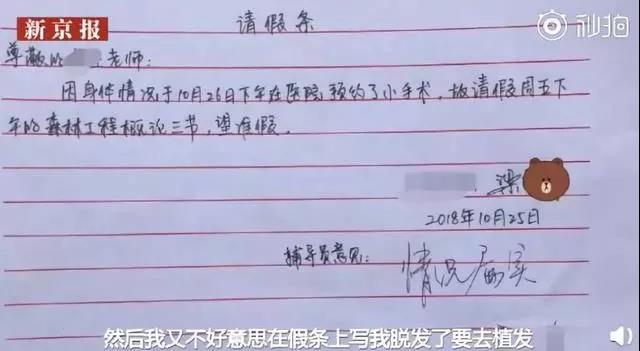 新京报
秒拍
请假条
尊敬的 老师:
因身体情况于10月26日下午在医院预约了小手术,故请假周五下
午的森林工程概论三节,望准假。
梁
2018年10月25日
辅导员意见:
情况属实
然后我又不好意思在假条上写我脱发了要去植发